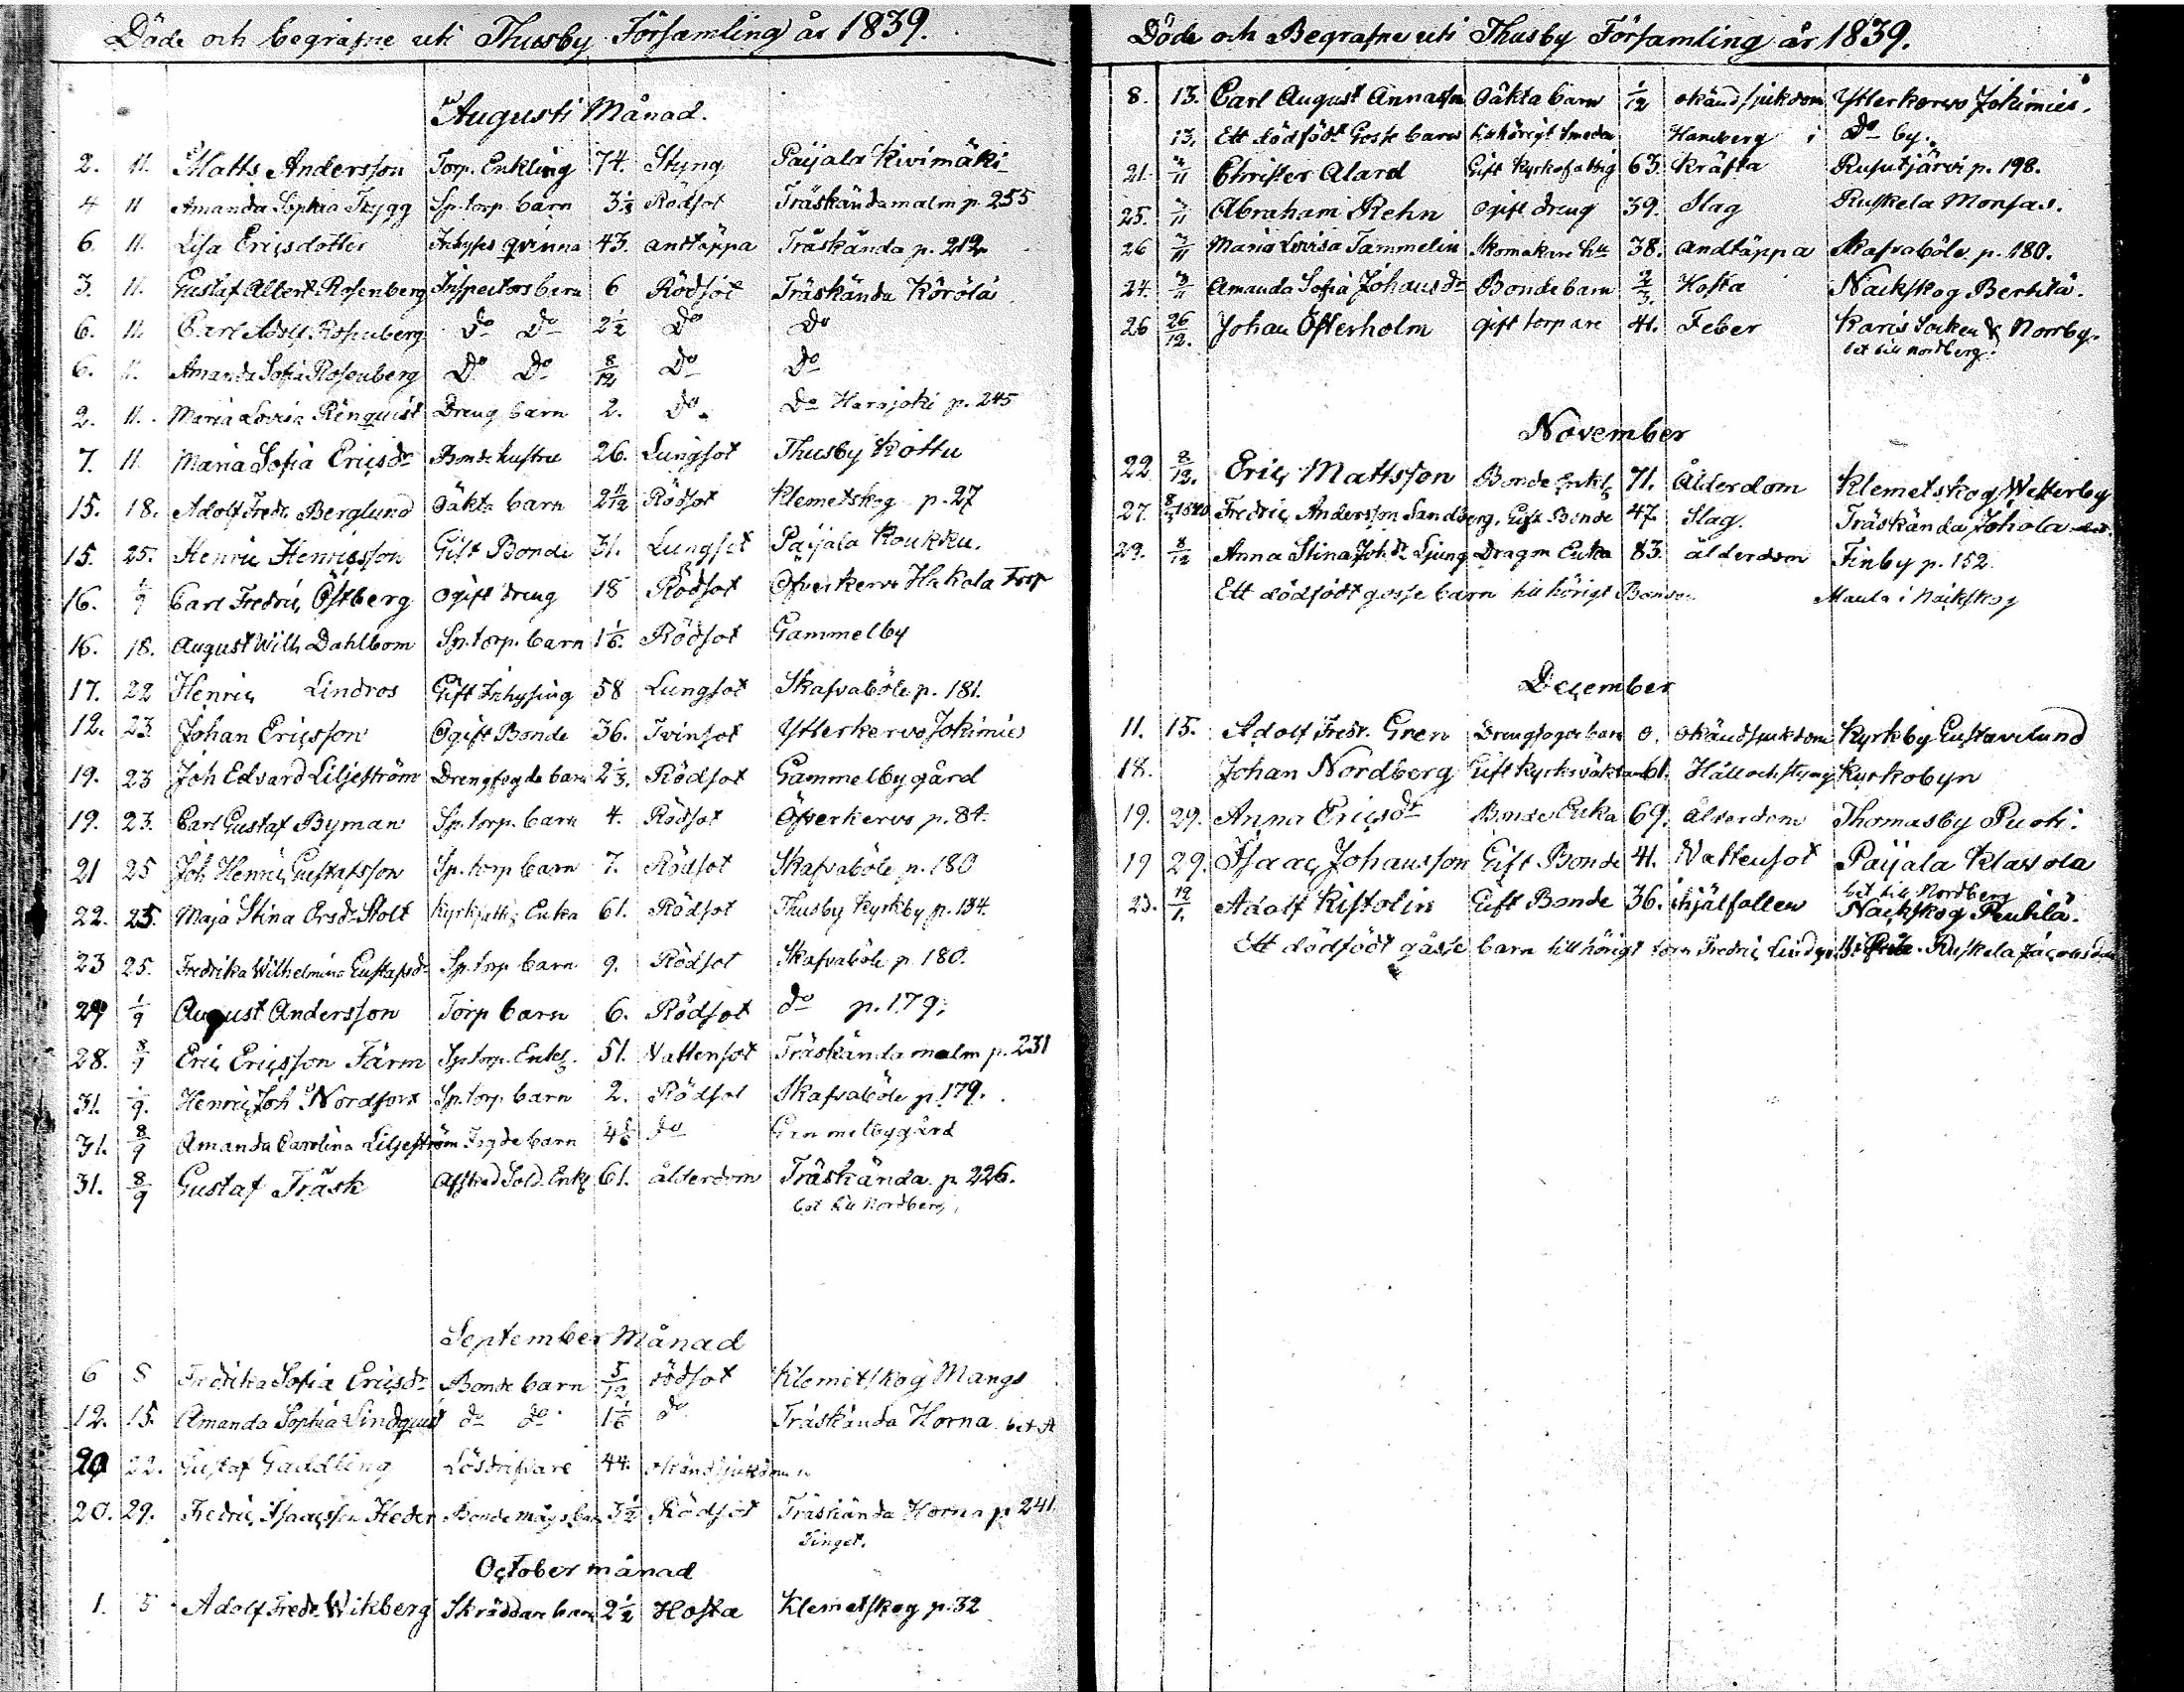 Döde och begrafne uti Thusby Församling år 1839.
Augusti Månad.
2. 11. Matts Andersson Torp. Enkling 74. Styng Paijala Kivimäki
4 11 Amanda Sophia Trygg Sp. torp. barn 3 1/2 Rödsot Träskändamalm p. 255
6. 11. Lisa Ericsdotter Inhyses qvinna 43. andtäppa Träskända p. 212
3. 11. Gustaf Albert Rosenberg Inspectors barn 6 Rödsot Träskända Körölä
6. 11. Carl Adolf Rosenberg Do Do 2 1/2 Do Do
6. 11. Amanda Sofia Rosenberg Do Do 8/12 Do Do
2. 11. Maria Lovisa Renquist Dreng barn 2. Do Do Harajoki p. 245
7. 11 Maria Sofia Ericsdr Bonde hustru 26. Lungsot Thusby Kottu
15. 18. Adolf Fredr. Berglund Oäkta barn 2 11/12 Rödsot Klemetskog p. 27
15. 25. Henric Henricsson Gift Bonde 31. Lungsot Paijala Koukku.
16. 1/9 Carl Fredric Östberg ogift dreng 18 Rödsot Ofverkervo Hakala Torp
16. 18. August Wilh Dahlbom Sp. torp. barn 1 1/6. Rödsot Gammelby
17. 22 Henric Lindros Gift Inhysing 58 Lungsot Skafvaböle p. 181.
12. 23 Johan Ericsson Ogift Bonde 36. Tvinsot Ytterkervo Jokimies
19. 23 Joh Edvard Liljeström Drengfogde barn 2 1/3. Rödsot Gammelbygård
19. 23. Carl Gustaf Byman Sp. torp. barn 4. Rödsot Öfverkervo p. 84.
21 25 Joh Henric Gustafsson Sp. torp barn 7. Rödsot Skafvaböle p. 180
22. 25. Maja Stina Ersdr Stolt Kyrkfattig Enka 61. Rödsot Thusby Kyrkby p. 134.
23 25. Fredrika Wilhelmina Gustafsdr Sp. torp barn 9. Rödsot Skafvaböle p 180.
29 1/9 August Andersson Torp barn 6. Rödsot do p. 179.
28. 8/9 Eric Ericsson Färm Sp. torp. Enkl. 51. Vattensot Träskändamalm p. 231
31. 1/9. Henric Joh Nordfors Sp. torp barn 2. Rödsot Skafvaböle p 179.
31. 8/9 Amanda Carolina Liljeström Fogde barn 4 do Gammelbygård
31. 8/9 Gustaf Träsk Afsked Sold. Enkl 61. ålderdom Träskända p 226.
bet till Nordberg
September Månad
6 8 Fredrika Sofia Ericsdr Bonde barn 5/12 rödsot Klemetskog Mangs
12. 15. Amanda Sophia Lindquist do do 1 1/6 do Träskända Horna bet
20 22. Gustaf Gaddling Lösdrifvare 44. okänd sjukdom
20. 29. Fredric Isaacsson Heder Bonde mågs barn 3 1/2 Rödsot Träskända Horna p 241
Tinget.
October månad
1. 5 Adolf Fredr. Wikberg Skräddare barn 2 1/2 Hosta Klemetskog p. 32
Döde och Begrafne uti Thusby Församling år 1839.
8. 13. Carl August Annasson Oäkta barn 1/12 okänd sjukdom Ytterkervo Jokimies.
13. Ett dödfödt Gosse barn tillhörigt Smeden Handberg i Do by.
21. 3/11 Christer Alard Gift Kyrkofattig 63. Kräfta Rusutjärvi p. 198.
25. 3/11 Abraham Rehn Ogift dreng 39. Slag Ruskela Monsas.
26 3/11 Maria Lovisa Tammelin Skomakare hu 38. andtäppa Skafvaböle p. 180.
24. 3/11 Amanda Sofia Johansdr Bonde barn 2/3. Hosta Nackskog Bertilä.
26 26/12. Johan Österholm gift torpare 41. Feber Karis Socken & Norrby.
bet till Nordberg.
November
22 8/12. Eric Mattsson Bonde Enkl 71. Ålderdom Klemetskog Wetterby
27. 1840 Fredric Andersson Sandberg. Gift Bonde 47. Slag. Träskända Johola
29. 8/12 Anna Stina Joh. dr Ljung Dragon Enka 83. ålderdom Finby p. 152.
Ett dödfödt gosse barn tillhörigt Bonden Maula i Nackskog
December
11. 15. Adolf Fredr. Gren Drengfogde barn 0. okänd sjukdom Kyrkby Gustavelund
18. Johan Nordberg Gift Kyrkoväktare 61. Håll och styng Kyrkobyn
19. 29. Anna Ericsdr Bonde Enka 69. ålderdom Thomasby Puoti.
19 29. Isaac Johansson Gift Bonde 41. Vattensot Paijala Klavola
bet till Nordberg
23. 12/1. Adolf Kistolin Gift Bonde 36. ihjälfallen Nackskog Penttilä.
Ett dödfödt gåsse barn tillhörigt torp Fredric Lindqvist Ruskela